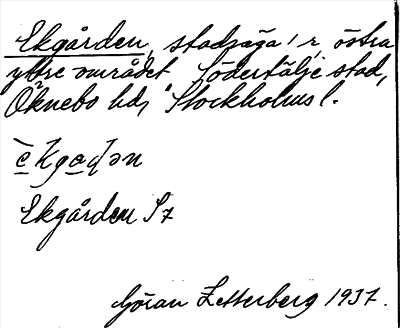 Ekgården, stadsäga 1 r, östra
yttre området Södertälje stad,
Öknebo hd, Stockholms l.
Ekgården S7
Göran Zetterberg 1937.